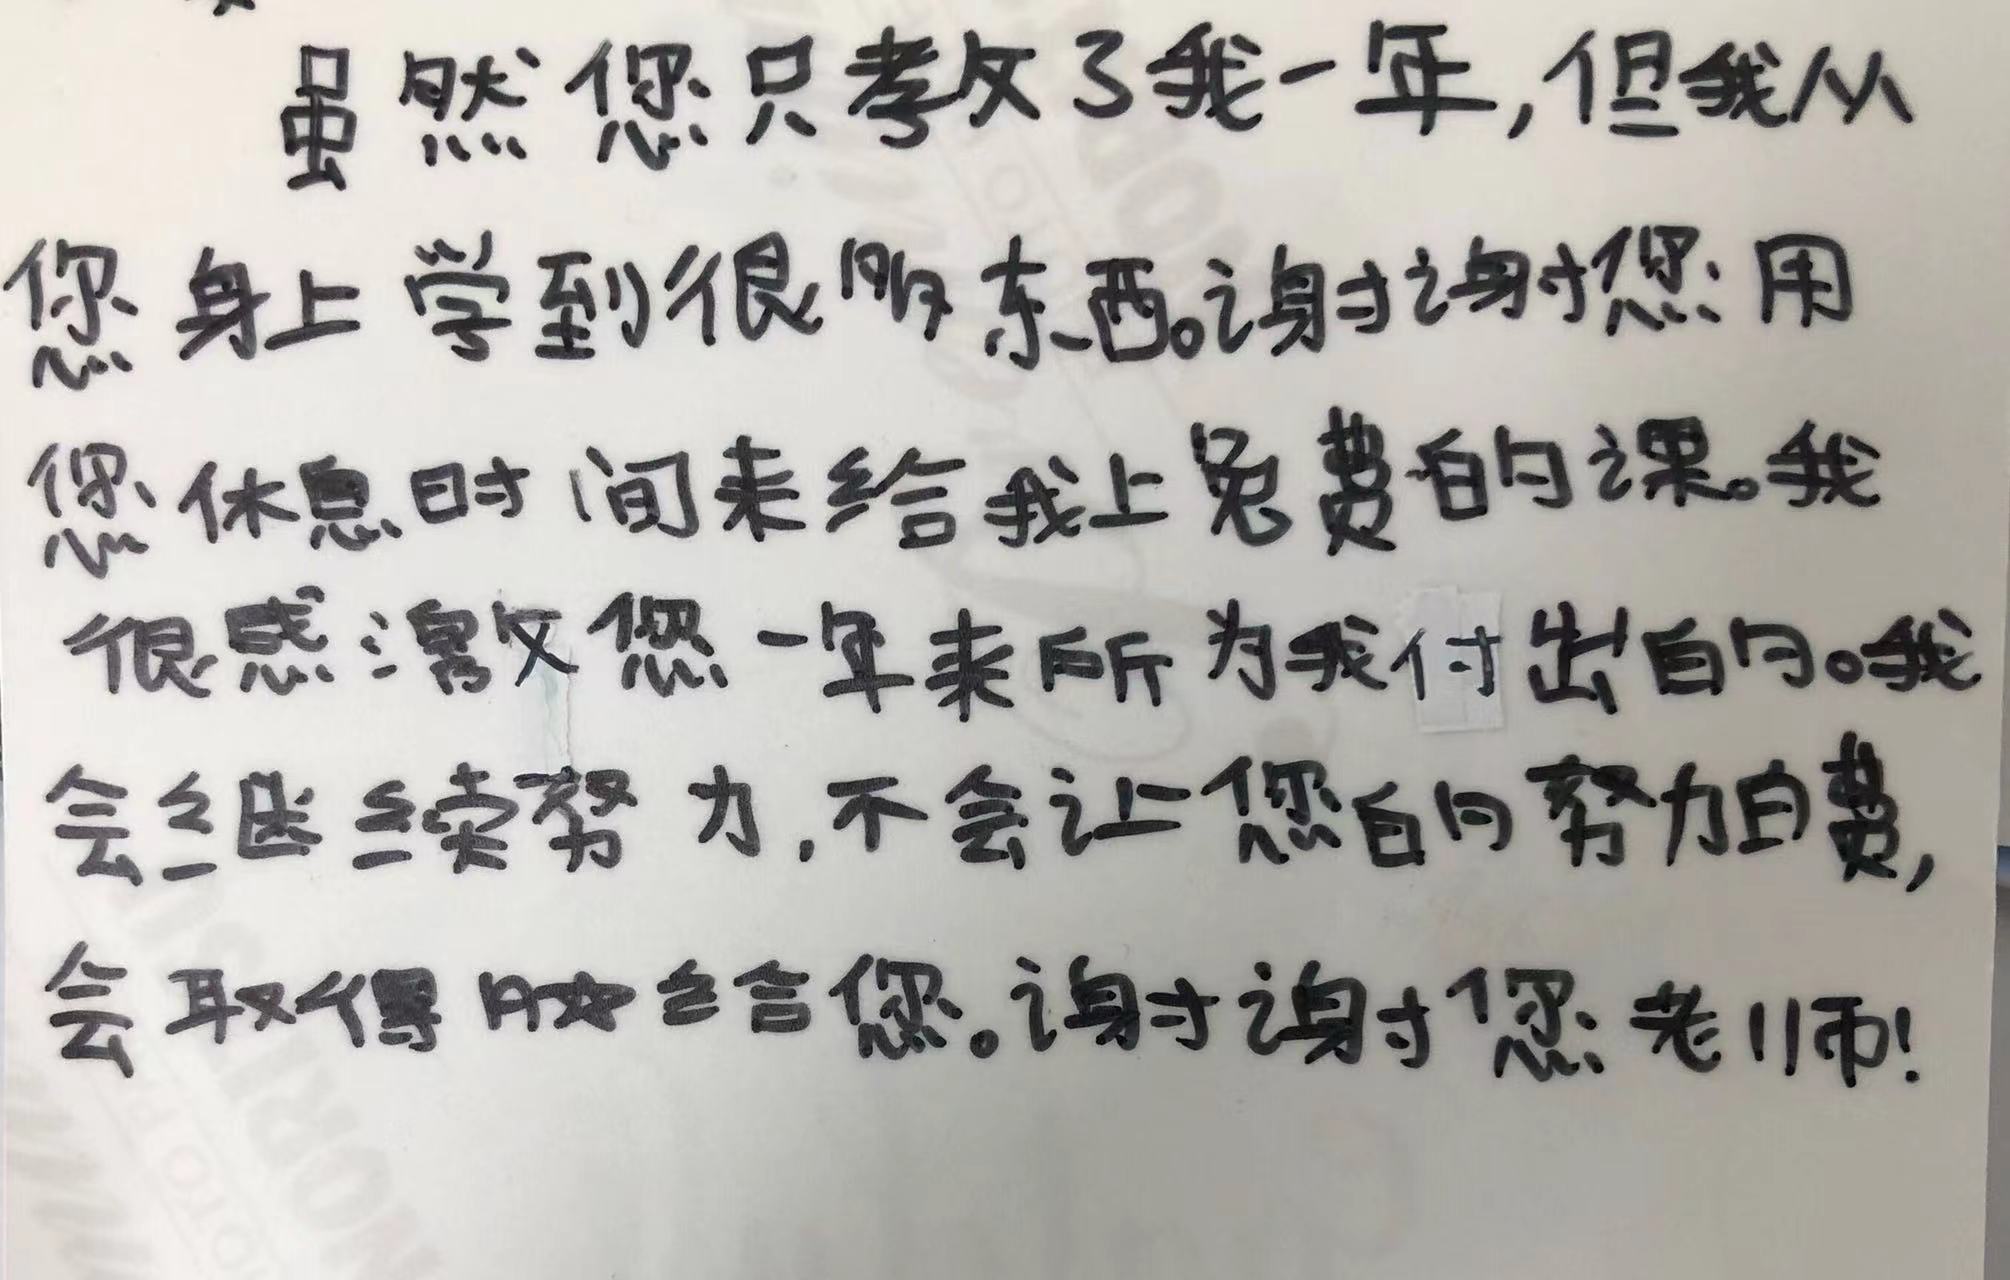 虽然您只教了我一年,但我从
您身上学到很东西。谢谢您用
您休息时间来给我上免费的课。我
很感激您一年来所为我付出的。我
会继续努力,不会让您的努力白费,
会取得给您。谢谢您老师!